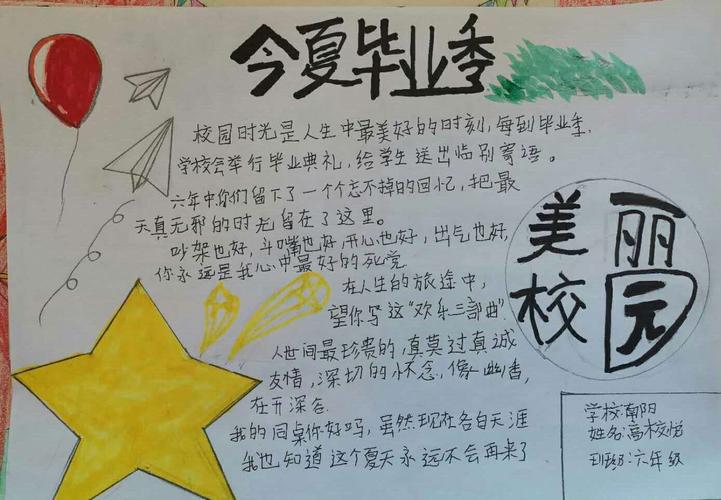 今夏毕业季
校园时光是人生中最美好的时刻,每到毕业季,
学校会举行毕业典礼,给学生送出临别寄语。
六年中你们留下了一个个忘不掉的回忆,把最
天真无邪的时光留在了这里。
吵架也好,斗嘴也好,开心也好,出气也好,
你永远是我心中最好的死党
在人生的旅途中,
望你写这"欢乐三部曲".
人世间最珍贵的,真莫过真诚
友情,深切的怀念,像幽香,
在开深谷
我的同桌你好吗,虽然现在各自天涯
我也知道这个夏天永远不会再来了
美丽
校园
学校:朝阳
姓名:高校怡
班级:六年级